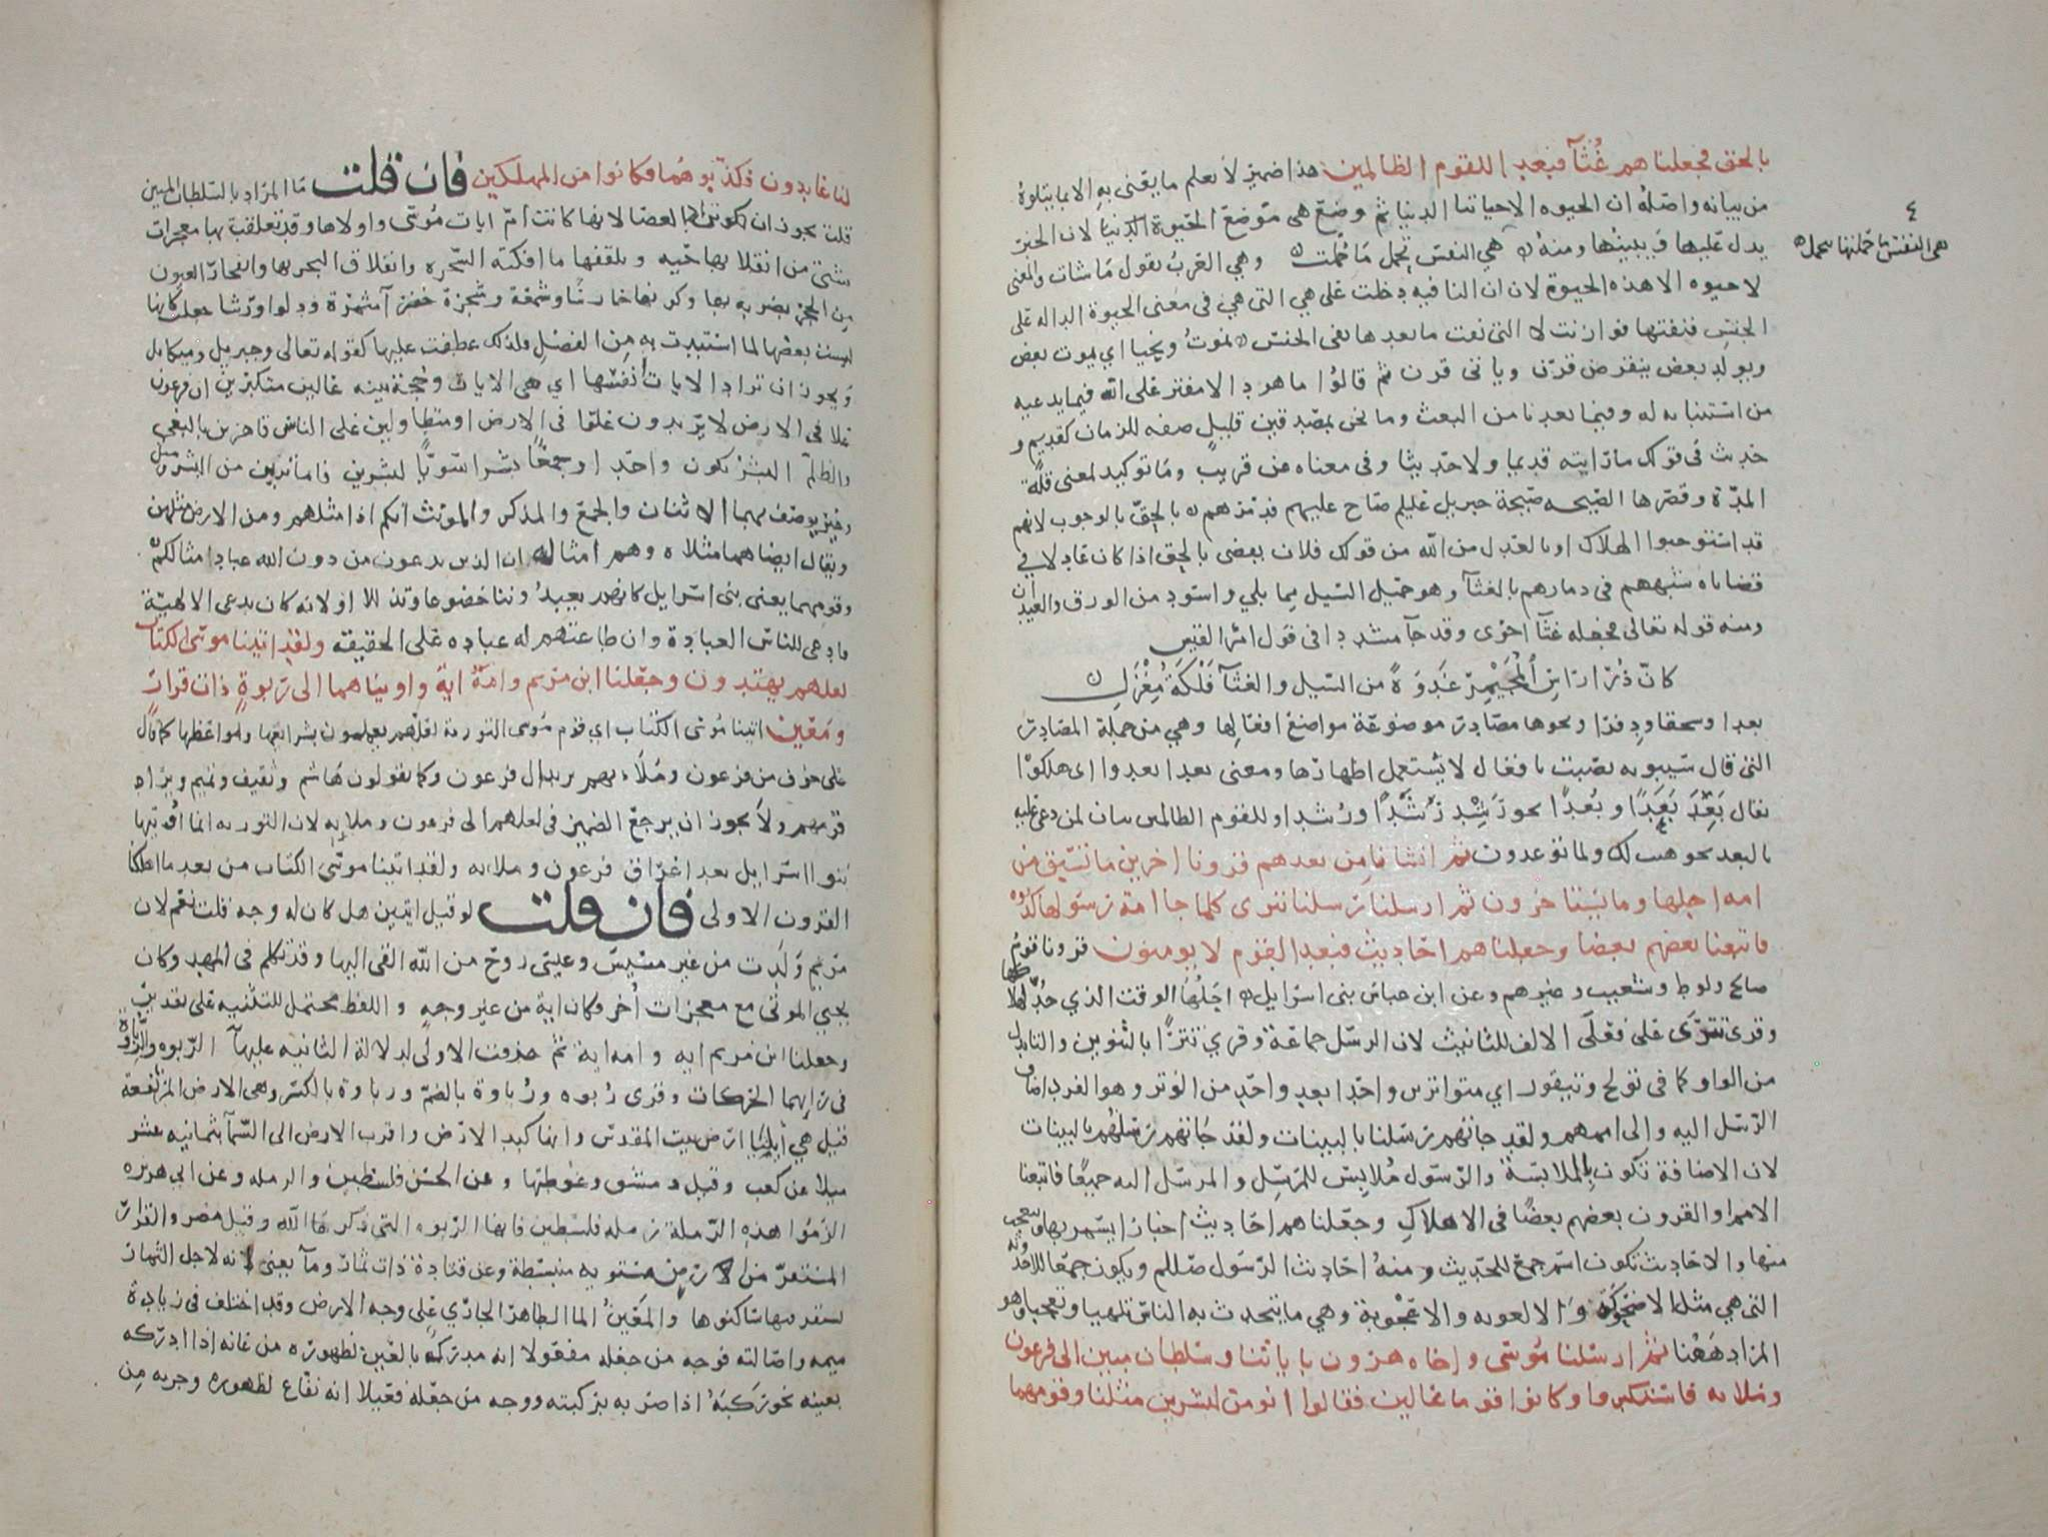 بالحق فجعلناهم غُثآ فبعدا للقوم الظالمين هذا ضمير لا يعلم ما يعنى به الا بما يتلوه
من بيانه واصله ان الحيوه الا حياتنا الدنيا ثم وضع هى موضع الحيوة الدنيا لان الخبر
يدل عليها ويبينها ومنه هي النفس تحمل ما حُملت وهي العرب تقول ما شات والمعنى
٤
هى النفس ما حملتها تحمل
لا حيوه الا هذه الحيوة لان ان النافيه دخلت على هي التى هي فى معنى الحيوة الداله على
الجنس فنفتها فوازنت لا التى نفت ما بعدها نفى الجنس نموتُ ونحيا اي يموت بعض
ويولد بعض ينقرض قرن وياتى قرن ثم قالوا ما هو الا مفتر على الله فيما يدعيه
من استنبايه له وفيما يعدنا من البعث وما نحن بمصدقين قليل صفه للزمان كقديم و
حديث فى قولك ما رايته قديما ولا حديثا وفى معناه عن قريب وما توكيد لمعنى قلة
المدة وقصرها الصيحه صيحة جبريل عليلم صاح عليهم فدمرهم بالحق بالوجوب لانهم
قد استوجبوا الهلاك او بالعدل من الله من قولك فلان يقضى بالحق اذا كان عادلا في
قضاياه شبههم فى دمارهم بالغثآ وهو حميل السيل مما بلي واسود من الورق والعيدان
ومنه قوله تعالى فجعله غثآ احوى وقد جآ مشددا فى قول امرا القيس
كانّ ذُرَا رَاسِ المُجَيْمِرِ غَدوَةً من السيل والغثآ فَلْكَةُ مِغْزَلِ
بعدا وسحقا ودفرا ونحوها مصادر موضوعة مواضع افعالها وهي من جملة المصادر
التى قال سيبويه نصبت بافعال لا يستعمل اظهارها ومعنى بعدا بعدوا اى هلكوا
يقال بَعِدَ بَعَدًا وبُعدًا نحو رَشِد رَشَدًا ورُشدا وللقوم الظالمين بيان لمن دعى عليه
بالبعد نحو هيت لك ولما توعدون ثم انشانا من بعدهم قرونا اخرين ما تسبق من
امه اجلها وما يستاخرون ثم ارسلنا رسلنا تترى كلما جا امة رسولها كذبوه
فاتبعنا بعضهم بعضا وجعلناهم احاديث فبعدا لقوم لا يومنون قرونا قوم
صالح ولوط وشعيب وغيرهم وعن ابن عباس بنى اسرائيل اجلُها الوقت الذي حُدّ لهلاكها
وقرى تترَى على فَعلَى الالف للتانيث لان الرسل جماعة وقري تترًا بالتنوين والتا بدل
من الواو كما فى تولج وتيقور اي متواترين واحدا بعد واحد من الوتر وهو الفرد اضاف
الرسل اليه والى اممهم ولقد جاتهم رسلنا بالبينات ولقد جاتهم رسلهم بالبينات
لان الاضافة تكون بالملابسة والرسول مُلابِس للمرسِل والمرسَل اليه جميعًا فاتبعنا
الامم او القرون بعضهم بعضًا فى الاهلاك وجعلناهم احاديث اخبارا يسمر بها ويتعجب
منها والاحاديث تكون اسم جمع للحديث ومنه احاديث الرسول صللم ويكون جمعا للاحدوثه
التى هي مثل الاضحوكة والالعوبه والاعجوبة وهي ما يتحدث به الناس تلهيا وتعجبا وهو
المراد ههنا ثم ارسلنا موسى واخاه هرون باياتنا وسلطان مبين الى فرعون
وملايه فاستكبروا وكانوا قوما عالين فقالوا انومن لبشرين مثلنا وقومهما
لنا عابدون فكذبوهما فكانوا من المهلكين فان قلت ما المراد بالسلطان المبين
قلت يجوز ان تكون العصا لانها كانت ام ايات موسى واولاها وقد تعلقت بها معجزات
شتى من انقلابها حيه وتلقفها ما افكته السحره وانفلاق البحر بها وانفجار العيون
من الحجر بضربه بها وكونها حارسًا وشمعة وشجرة خضرآ مثمرة ودلوا ورشا جعلت كانها
ليست بعضها لما استبدت به من الفضل فلذلك عطفت عليها كقوله تعالى وجبريل وميكايل
ويجوز ان تراد الايات انفسها اي هى الايات وحجة بينه عالين متكبرين ان فرعون
علا فى الارض لا يريدون علوا فى الارض او متطاولين على الناس قاهرين بالبغي
والظلم البشر يكون واحدا وجمعًا بشرا سويًا لبشرين فاما ترين من البشر ومثل
وغير يوصف بهما الاثنان والجمع والمذكر والمونث انكم اذا مثلهم ومن الارض مثلهن
ويقال ايضا هما مثلاه وهم امثاله ان الذين يدعون من دون الله عباد امثالكم
وقومهما يعنى بنى اسرايل كانهم يعبدوننا خضوعا وتذللا او لانه كان يدعى الالهيّة
فادعى للناس العبادة وان طاعتهم له عباده على الحقيقه ولقد اتينا موسى الكتاب
لعلهم يهتدون وجعلنا ابن مريم وامهُ ايةً واويناهما الى ربوةٍ ذات قرار
ومعين اتينا موسى الكتاب اي قوم موسى التورية لعلهم يعملون بشرايعها ومواعظها كما قال
على خوف من فرعون وملآيهم يريد ال فرعون وكما يقولون هاشم وثقيف وتميم ويراد
قومهم ولا يجوز ان يرجع الضمير فى لعلهم الى فرعون وملايه لان التوريه انما اوتيها
بنوا اسرايل بعد اغراق فرعون وملايه ولقد اتينا موسى الكتاب من بعد ما اهلكنا
القرون الاولى فان قلت لو قيل ايتين هل كان له وجه قلت نعم لان
مريم ولدت من غير مسيس وعيسى روح من الله القى اليها وقد تكلم فى المهد وكان
يحيي الموتى مع معجزات أُخر فكان اية من غير وجهٍ واللفظ محتمل للتثنيه على تقدير
وجعلنا ابن مريم ايه وامه اية ثم حذفت الاولى لدلالة الثانيه عليهآ الربوه والرباوة
فى رايهما الحركات وقرى رُبوه ورُباوة بالضم ورِباوة بالكسر وهى الارض المرتفعة
قيل هي ايليا ارض بيت المقدس وانها كبد الارض واقرب الارض الى السمآ بثمانيه عشر
ميلا عن كعب وقيل دمشق وغوطتها وعن الحسن فلسطين والرمله وعن ابي هريره
الزموا هذه الرملة رمله فلسطين فانها الربوه التى ذكرها الله وقيل مصر والقرار
المستقر من ارض مستويه منبسطة وعن قتادة ذات ثمار ومآ يعنى انه لاجل الثمار
يستقر فيها ساكنوها والمَعينُ الما الظاهر الجاري على وجه الارض وقد اختلف فى زيادة
ميمه واصالته فوجه من جعله مفعولا انه مدرك بالعين لظهوره من عانه اذا ادركه
بعينه نحو ركَبَهُ اذا ضربه بركبته ووجه من جعله فعيلا انه نفّاع لظهوره وجريه من